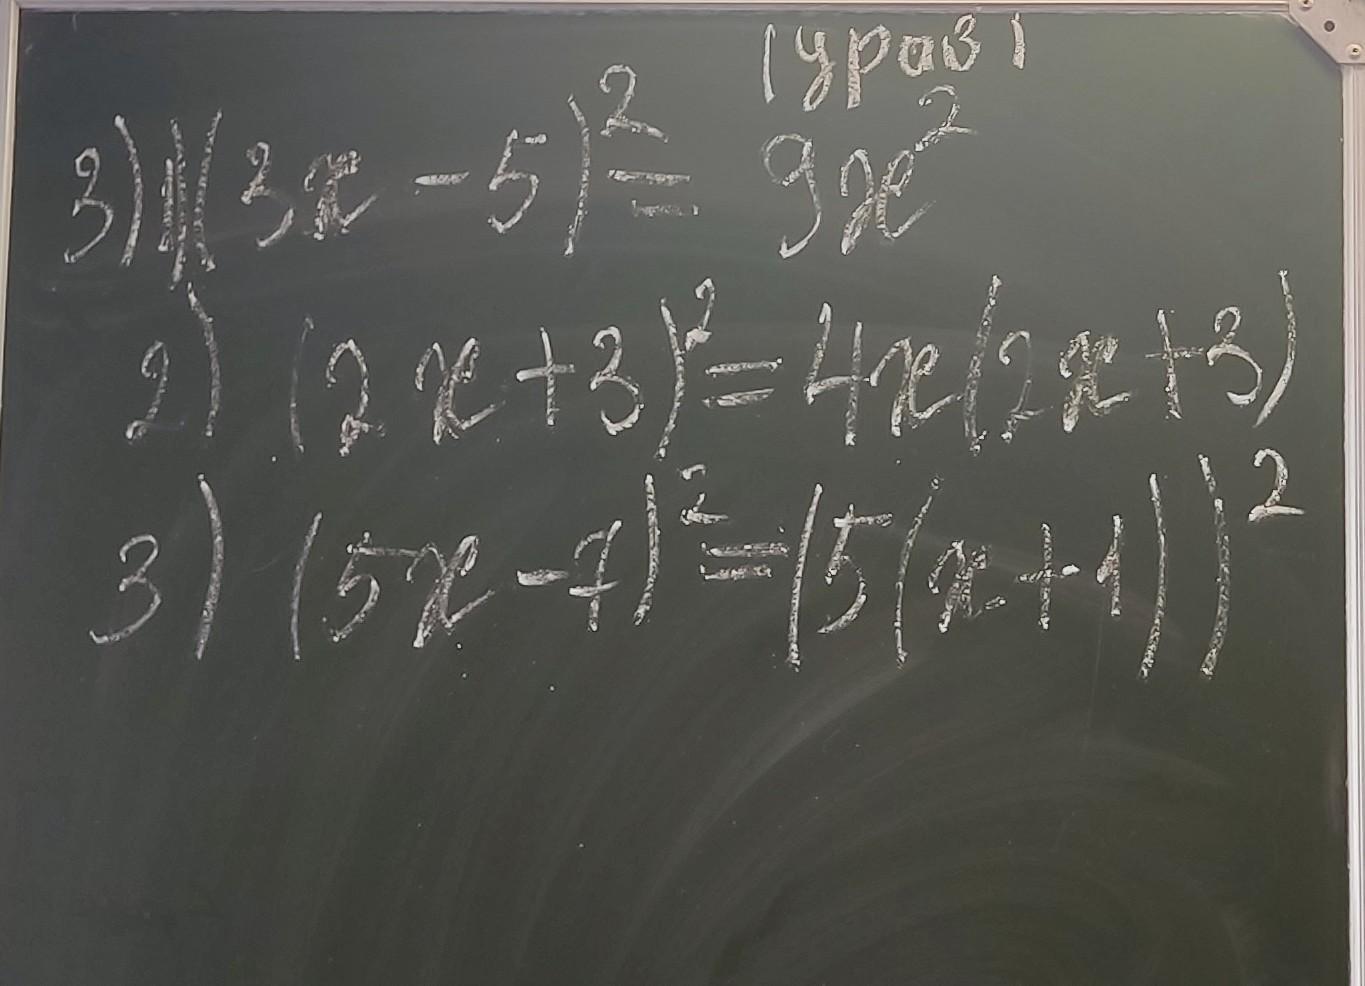 (урав)
3) (3x - 5)² = 9x²
2) (2x + 3)² = 4x(2x + 3)
3) (5x - 7)² = (5(x + 1))²